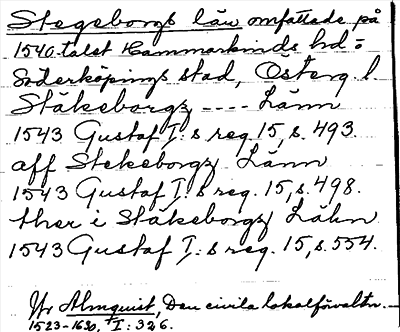 Stegeborgs län omfattade på
1540-talet Hammarkinds hd o
Söderköpings stad, Österg. l
Stäkeborgz ---- Länn
1543 Gustaf I:s reg. 15, s. 493.
aff Stekeborgz Länn
1543 Gustaf I:s reg. 15, s. 498.
ther i Stäkeborgz Lähn
1543 Gustaf I:s reg. 15, s. 554.
Jfr Almquist, Den civila lokalförvaltn.
1523-1630, I: 326.